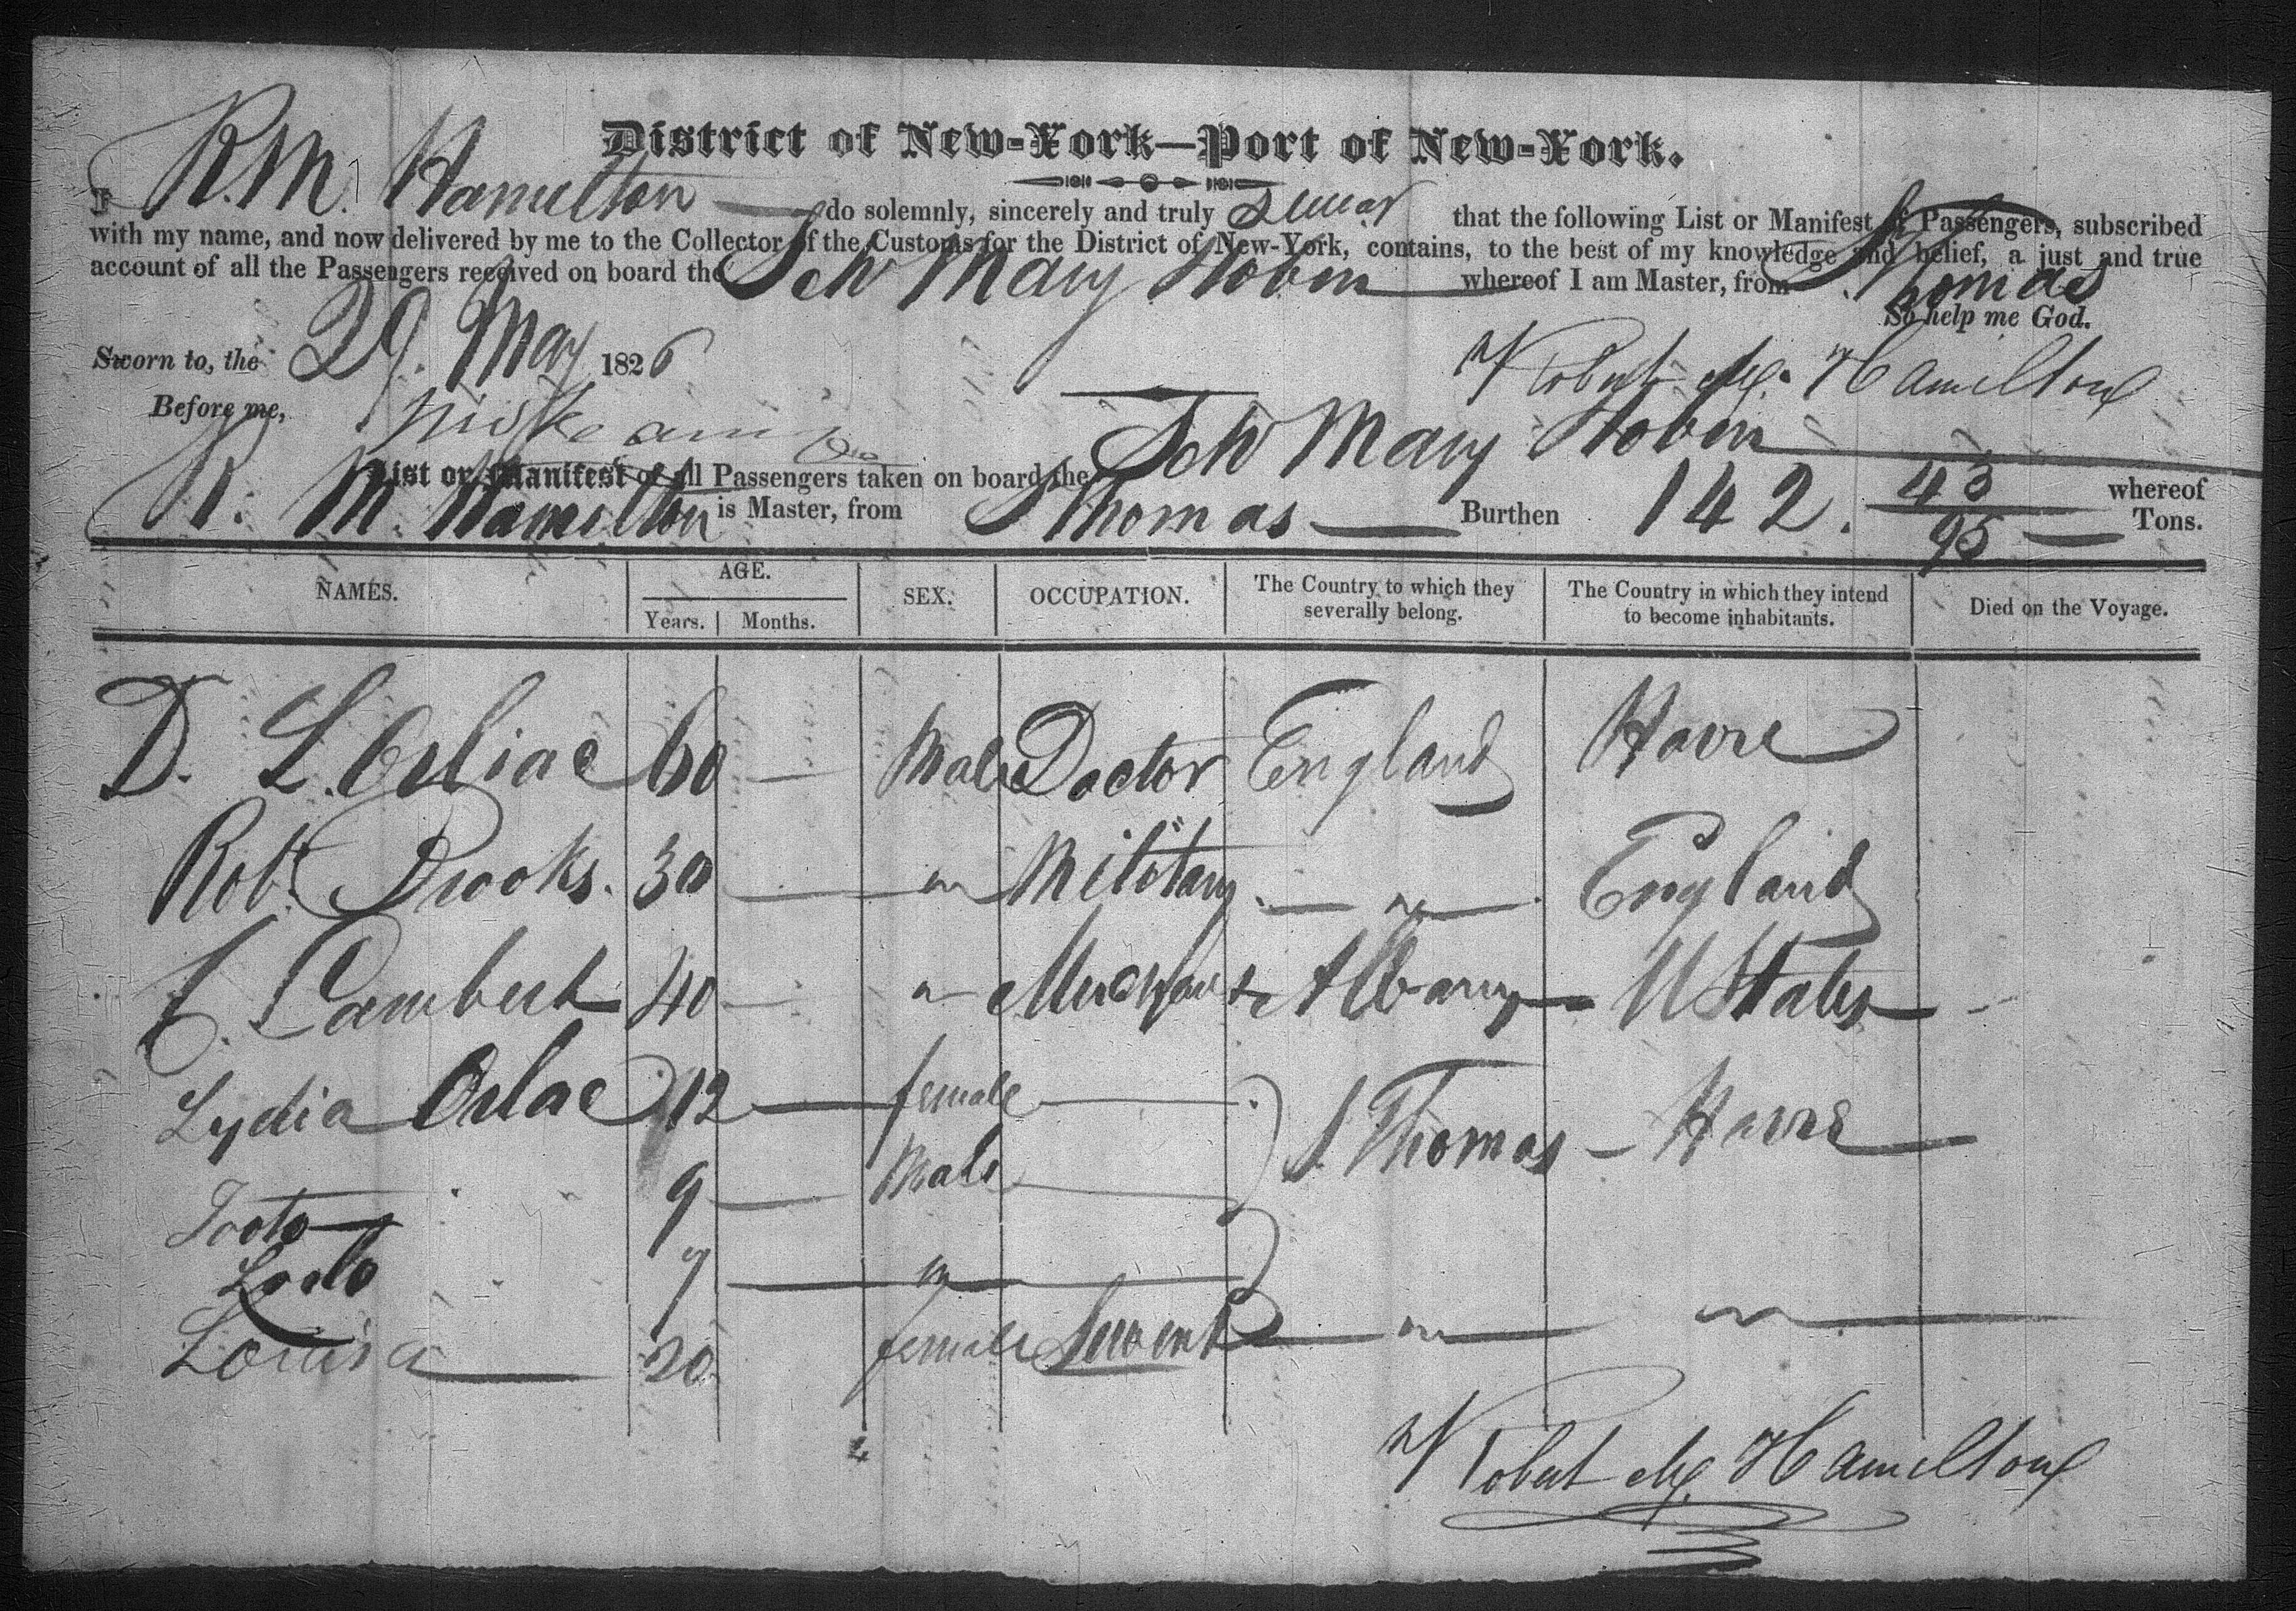 District of New-York—Port of New-York.
I R. M. Hamilton do solemnly, sincerely and truly swear that the following List or Manifest of Passengers, subscribed
with my name, and now delivered by me to the Collector of the Customs for the District of New-York, contains, to the best of my knowledge and belief, a just and true
account of all the Passengers received on board the Schr Mary Hoben whereof I am Master, from St Thomas
So help me God.
Sworn to, the 29. May 1826
Robert M. Hamilton
Before me,
List or Manifest of all Passengers taken on board the Schr Mary Hoben whereof
R. M. Hamilton is Master, from St Thomas Burthen 142. 43/95 Tons.
NAMES. AGE. SEX. OCCUPATION. The Country to which they severally belong. The Country in which they intend to become inhabitants. Died on the Voyage.
Years. Months.
D. L. Orliac 60 Male Doctor England Havre
Robt. Brooks. 30 " Military. " England
C. Lambert 40 " Merchant Albany U States
Lydia Orlac 12 female
S. Thomas - Havre
Tooto 9 Male
Loolo 7 "
Louisa 20 female Servent " "
Robert M. Hamilton